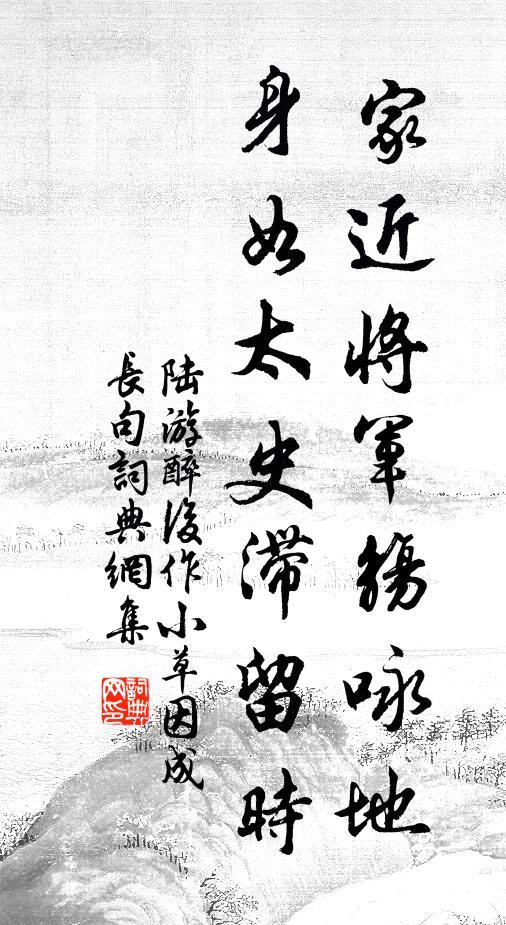 家近將軍觴咏地
身如太史滯留時
陸游醉後作小草因成
長句詞典網集
詞典
网印